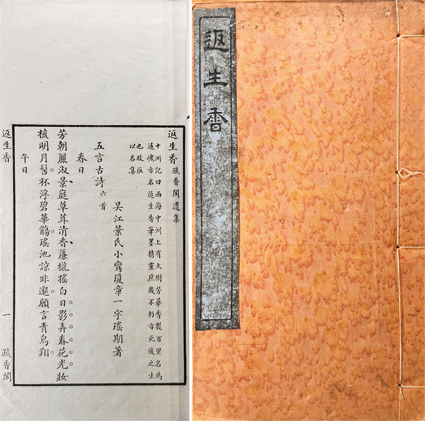 返生香
返生香 疏香閣遺集
十洲記曰西海中洲上有大樹芳華香數百里名為
返魂亦名返生香筆墨精靈庶幾不朽亦死後之生
也故取
以名集
吳江葉氏小鸞瓊章一字瑤期著
五言古詩 六首
春日
芳朝麗淑景庭草茸清香簾櫳搖白日影弄春花光妝
梳明月髻杯浮碧華觴瑤池諒非邈願言青鳥翔
午日
返生香 一 疏香閣